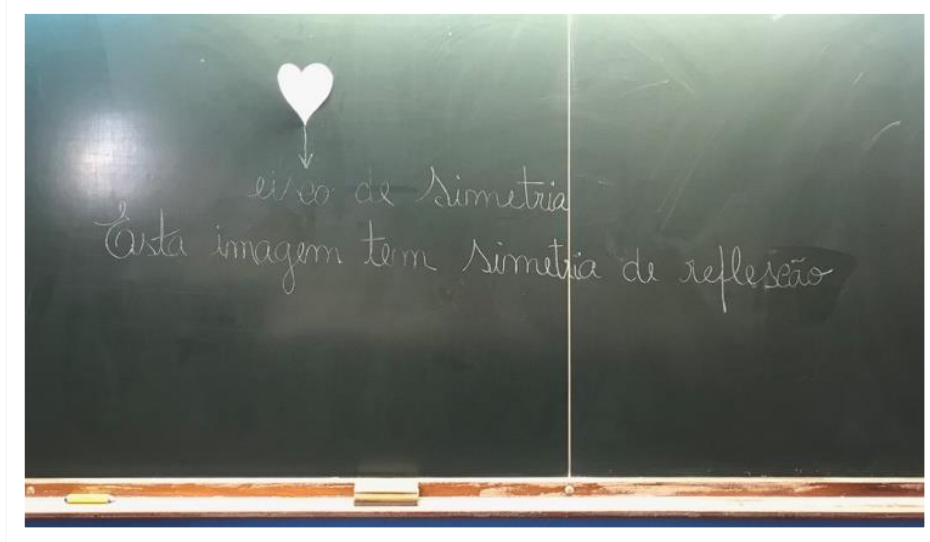 eixo de simetria
Esta imagem tem simetria de reflexão